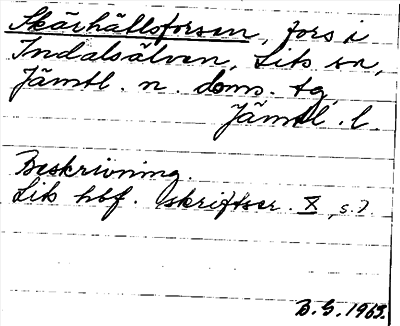 Skärhällsforsen, fors i
Indalsälven, Lits sn,
Jämtl. n. doms. tg,
Jämtl. l.
Beskrivning.
Lits hbf. skriftser. X, s. 7.
B. G. 1963.